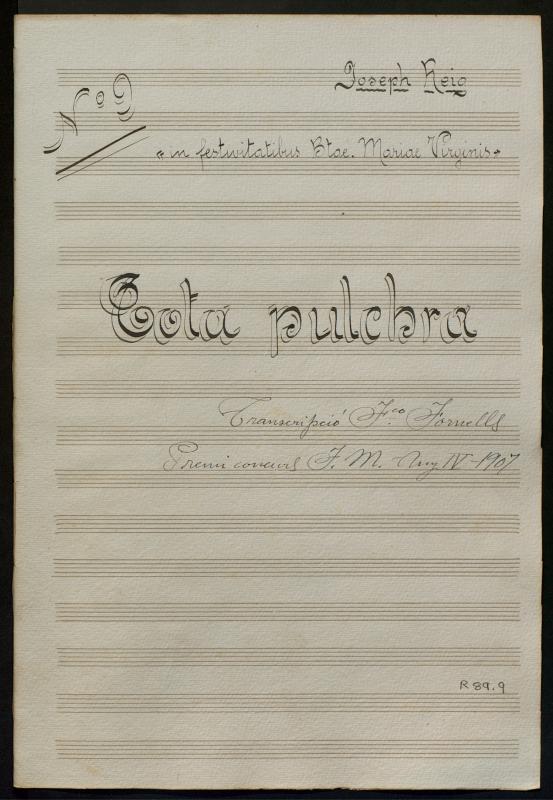 Joseph Reig
Nº 9
"in festivitatibus Btae. Mariae Virginis"
Tota pulchra
Transcripció F.co Fornells
Premi concurs F. M. Any IV-1907
R 89.9